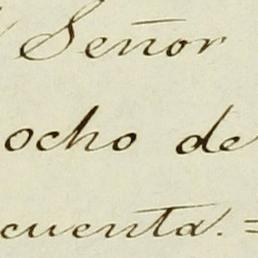 Señor
ocho de
cuenta. =